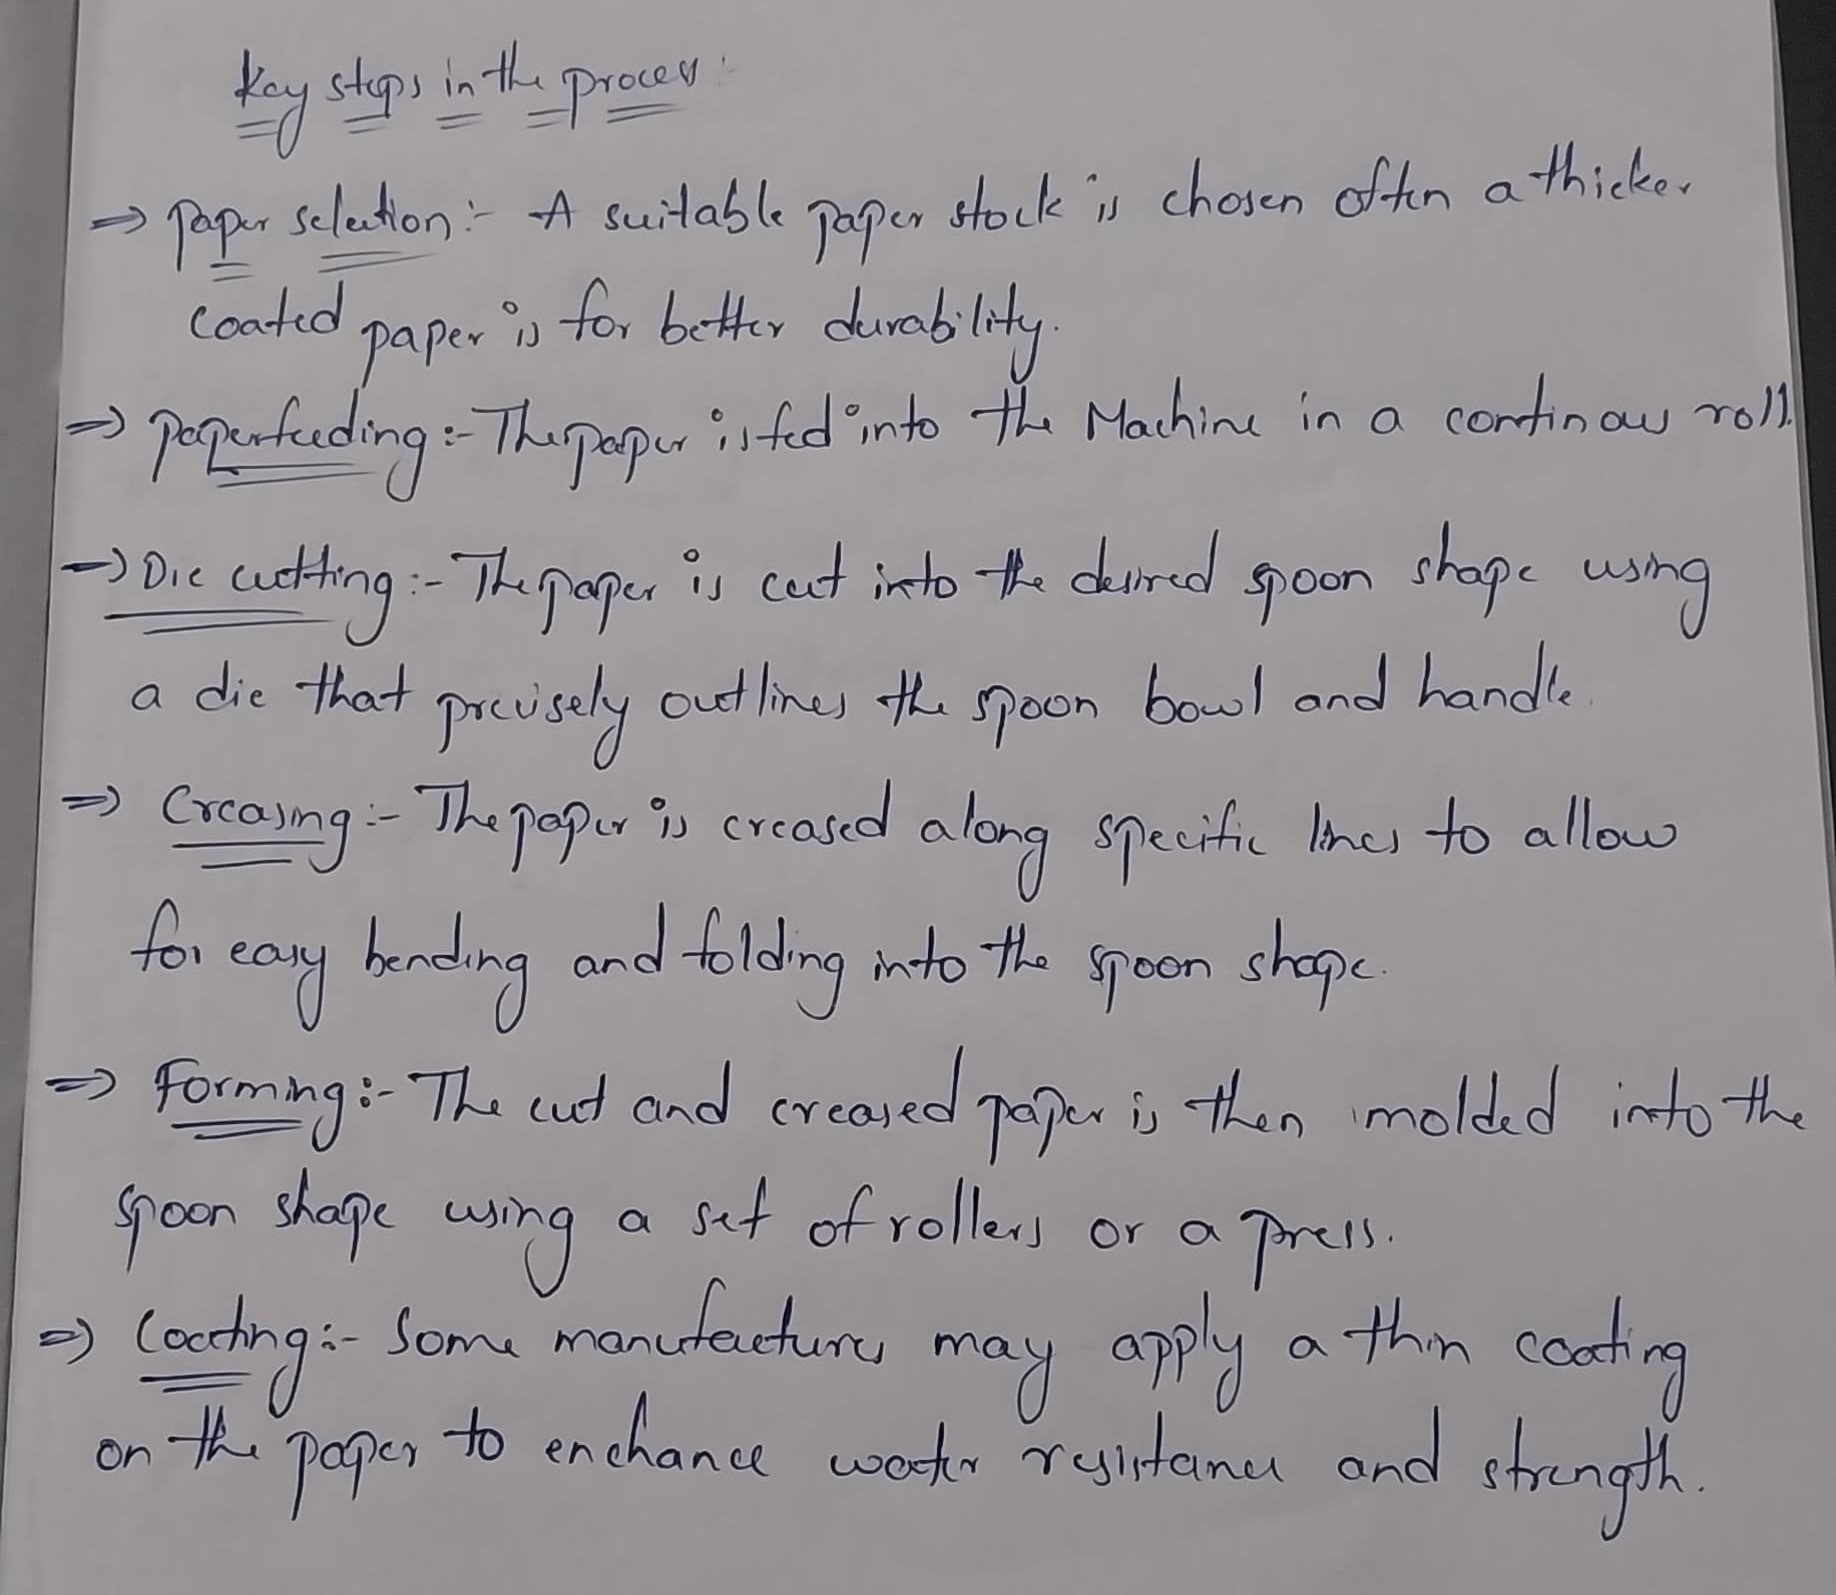 Key steps in the process:
⇒ paper selection:- A suitable paper stock is chosen often a thicker
coated paper is for better durability.
⇒ paperfeeding:- The paper is fed into the Machine in a continous roll.
→ Die cutting:- The paper is cut into the desired spoon shape using
a die that precisely outlines the spoon bowl and handle.
⇒ Creasing:- The paper is creased along specific lines to allow
for easy bending and folding into the spoon shape.
⇒ Forming:- The cut and creased paper is then molded into the
spoon shape using a set of rollers or a press.
⇒ Coating:- Some manufactures may apply a thin coating
on the paper to enchance water resistance and strength.